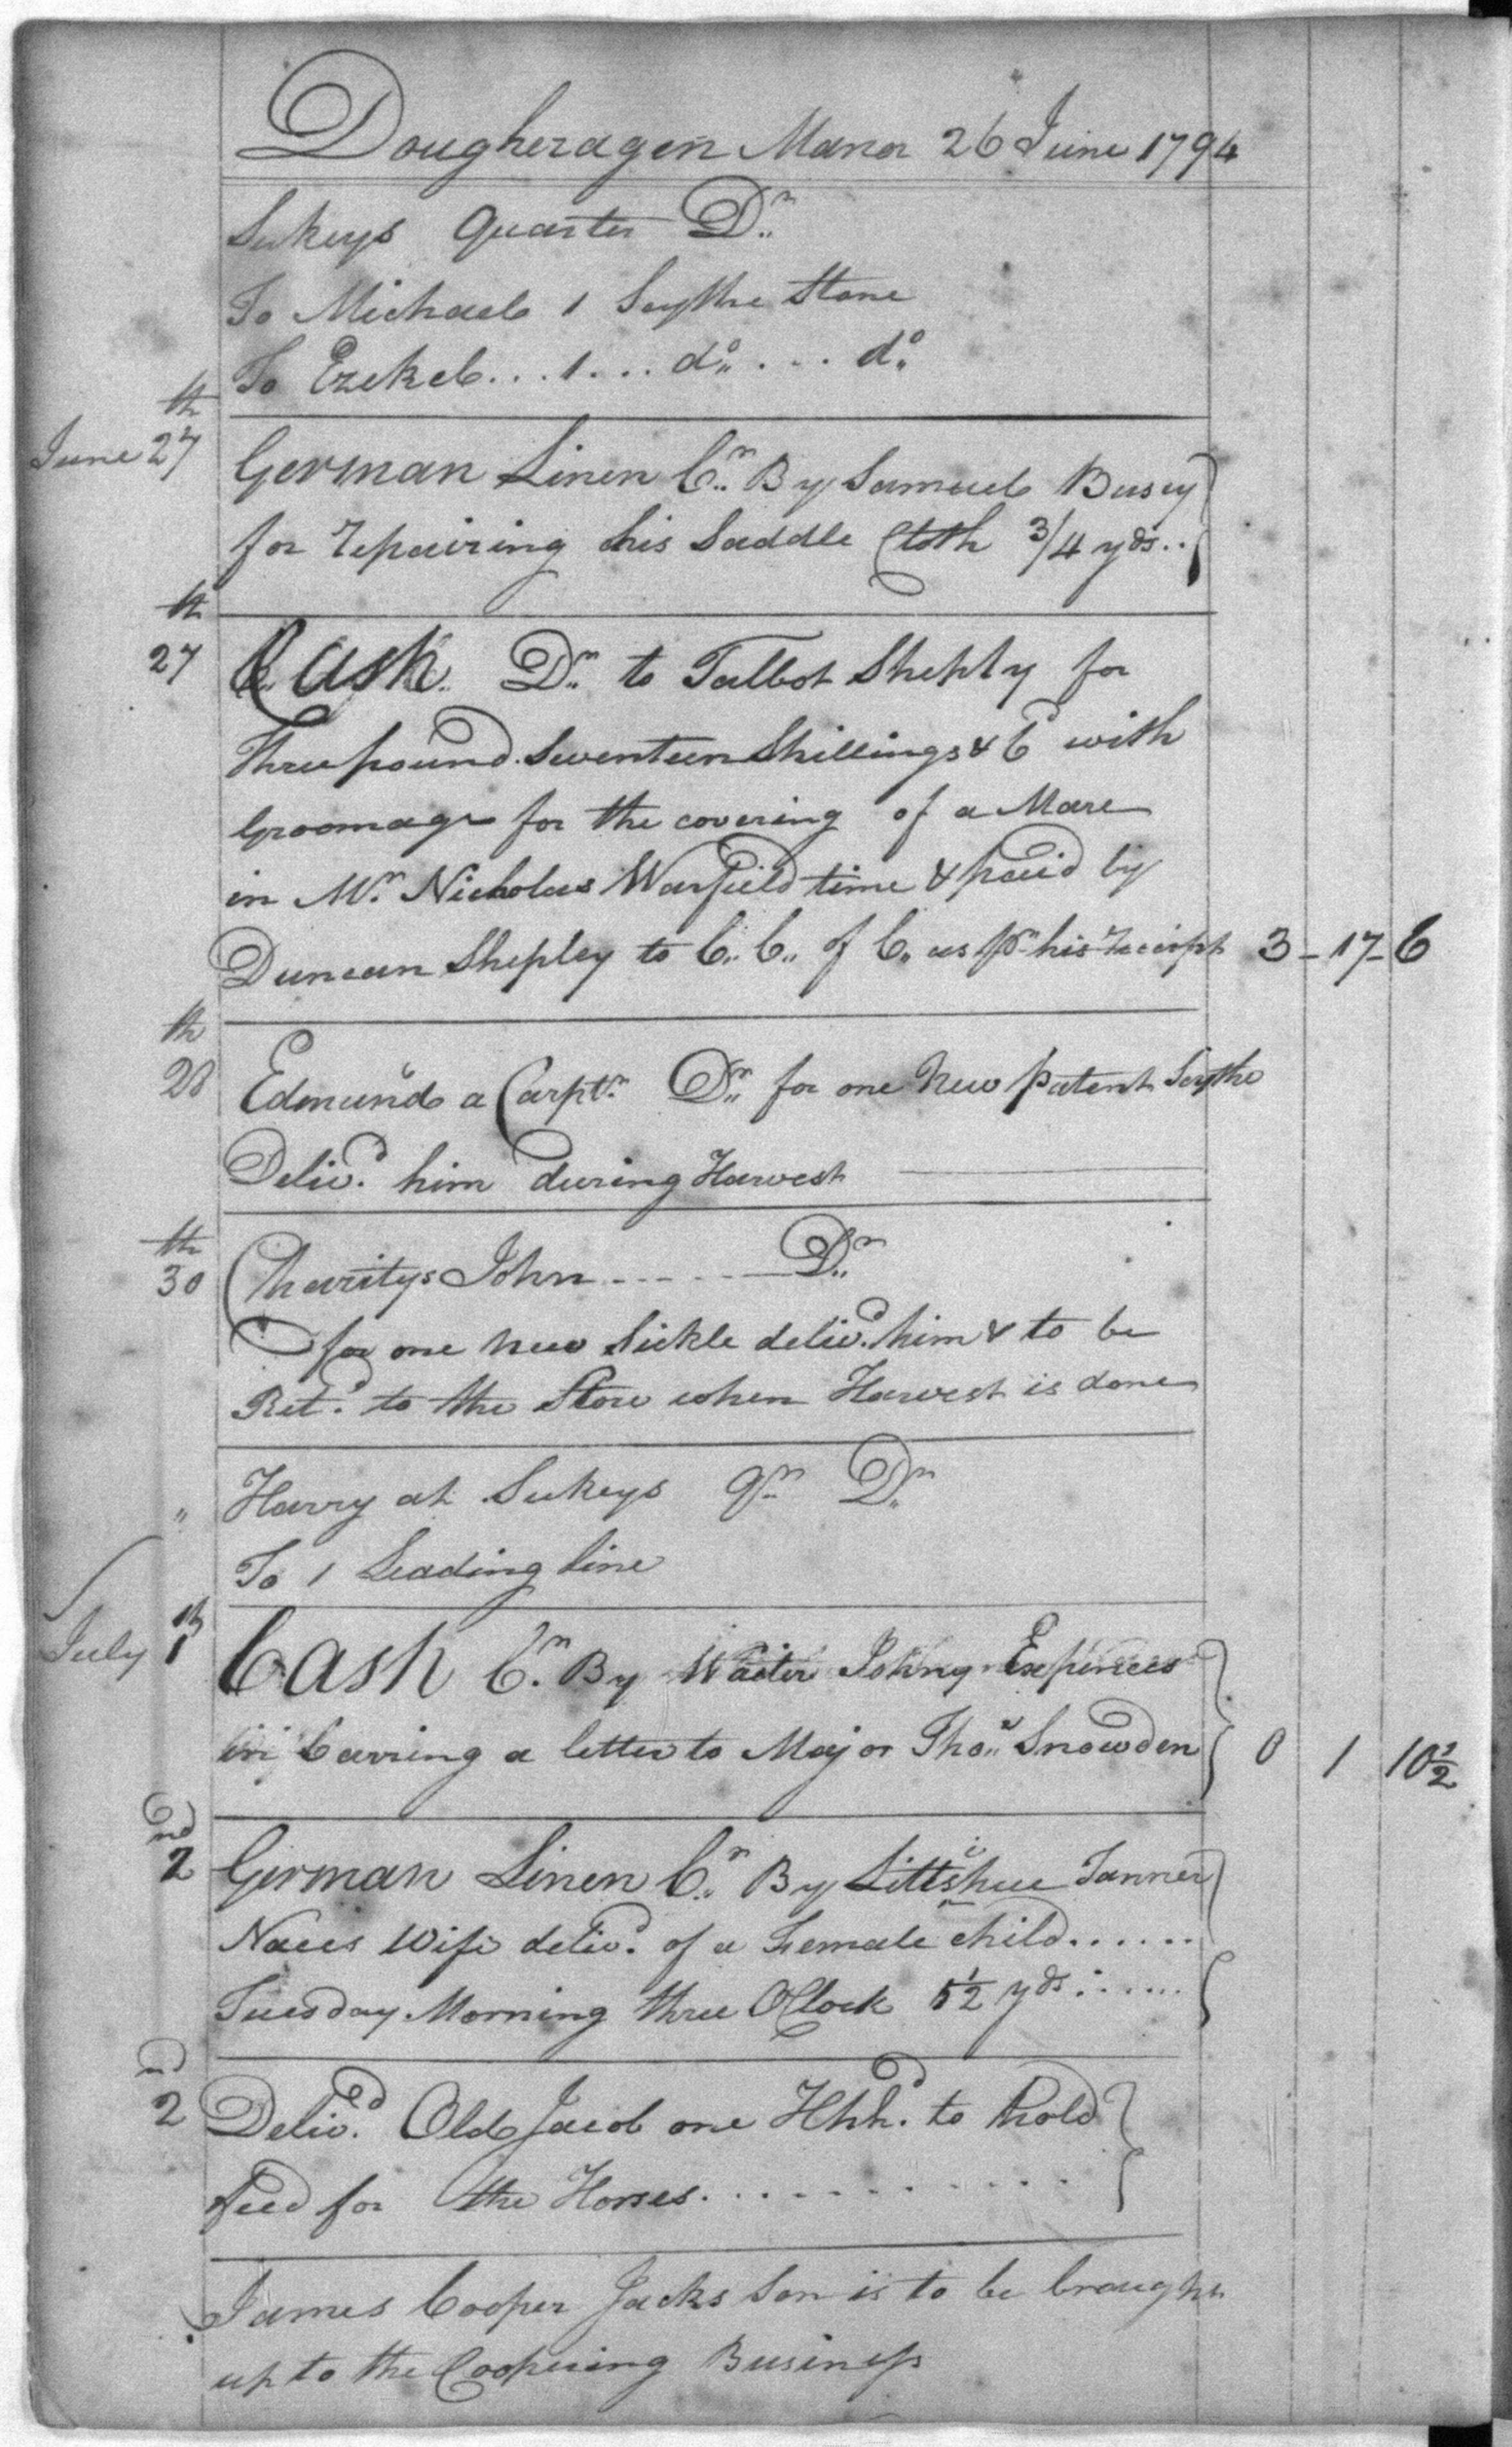 Dougheragen Manor 26 June 1794
Sukeys Quarter Dr
To Michael 1 Scythe Stone
To Ezekel...1...do....do
June 27th German Linen Cr By Samuel Busey
for repairing his Saddle Cloth 3/4 yds..
27th Cash Dr to Talbot Sheply for
Three pound Seventeen Shillings & 6d with
Groomage for the covering of a Mare
in Mr Nicholas Warfield time & paid by
Duncan Shepley to C. C. of C. as pr his receipt 3-17-6
28th Edmund a Carptr Dr for one New patent Scythe
Delivd him during Harvest
30th Charitys John......Dr
for one new Sickle delivd him & to be
Retd to the Store when Harvest is done
" Harry at Sukeys qr Dr
To 1 Leading line
July 1th Cash Cr By Waiter Johny Expences
in Carring a letter to Major Thos Snowden 0 1 10 1/2
2nd German Linen Cr By Tanner
Naces Wife delivd of a Female child......
Tuesday Morning three OClock 5 1/2 yds......
2nd Delivd Old Jacob one Hhd to hold
feed for the Horses...........
James Cooper Jacks Son is to be brought
up to the Coopering Business